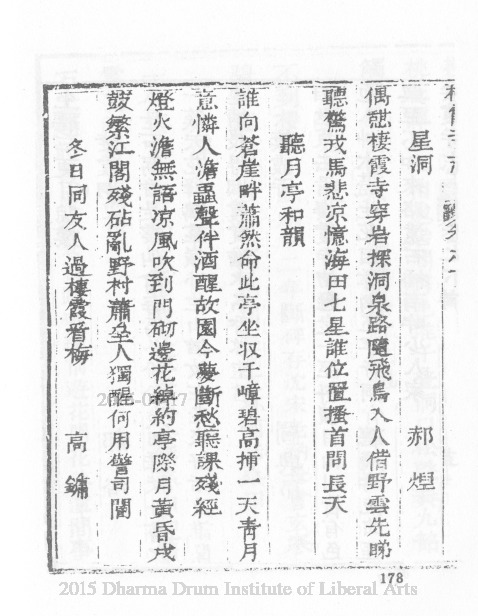 星洞　郝煋
偶說棲霞寺穿岩探洞泉路隨飛鳥入人借野雲先睇
聽驚戎馬悲凉憶海田七星誰位置搔首問長天
聽月亭和韻
誰向蒼崖畔蕭然命此亭坐収千嶂碧高揷一天青月
意憐人澹蛩聲伴酒醒故園今夢斷愁聽課殘經
燈火澹無語凉風吹到門砌邊花綽約亭際月黄昏戍
鼓繁江閣殘砧亂野村蕭𡊮人獨醒何用聲司閽
冬日同友人過棲霞看梅　高鏞
178
2015 Dharma Drum Institute of Liberal Arts